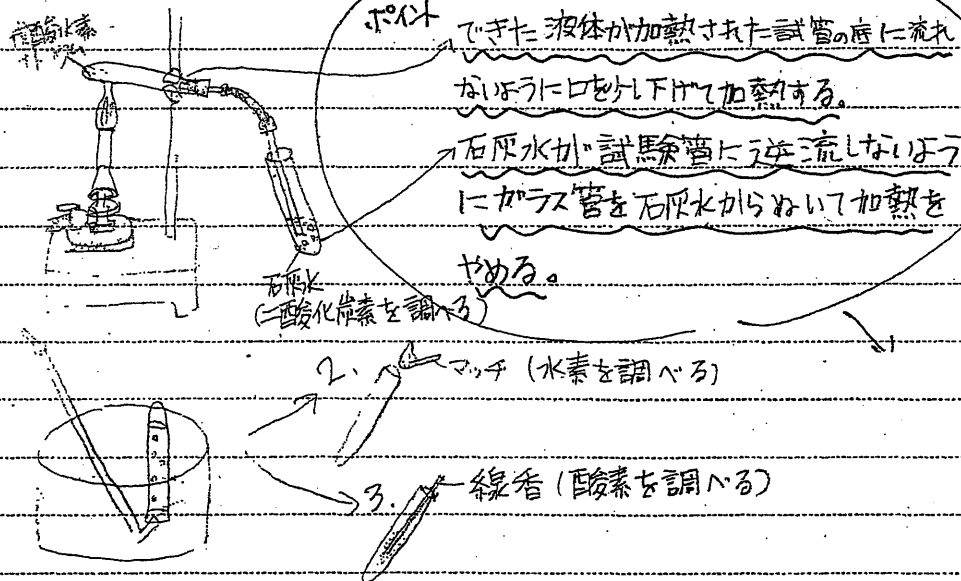 ポイント
できた液体が加熱された試管の底に流れ
ないように口を少し下げて加熱する。
石灰水が試験管に逆流しないよう
にガラス管を石灰水からぬいて加熱を
やめる。
石灰水
(二酸化炭素を調べる)
2.
マッチ (水素を調べる)
3.
線香 (酸素を調べる)